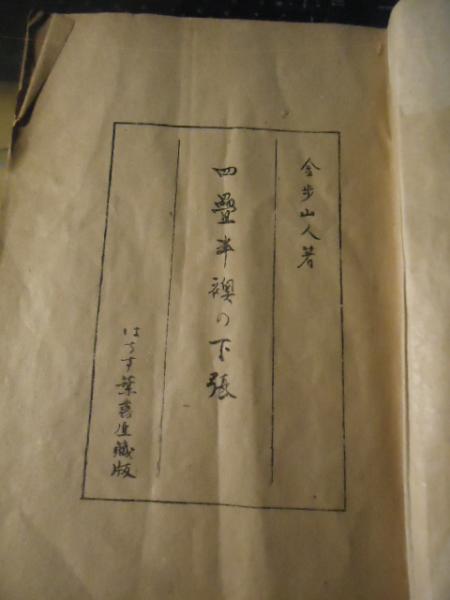 金歩山人著
四疊半襖の下張
はちす葉書屋藏版